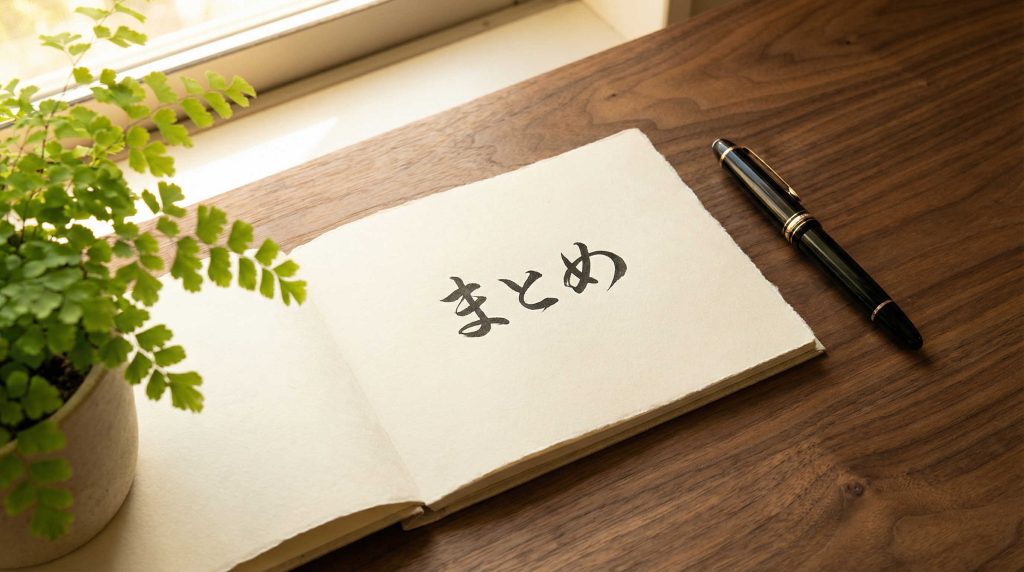 まとめ